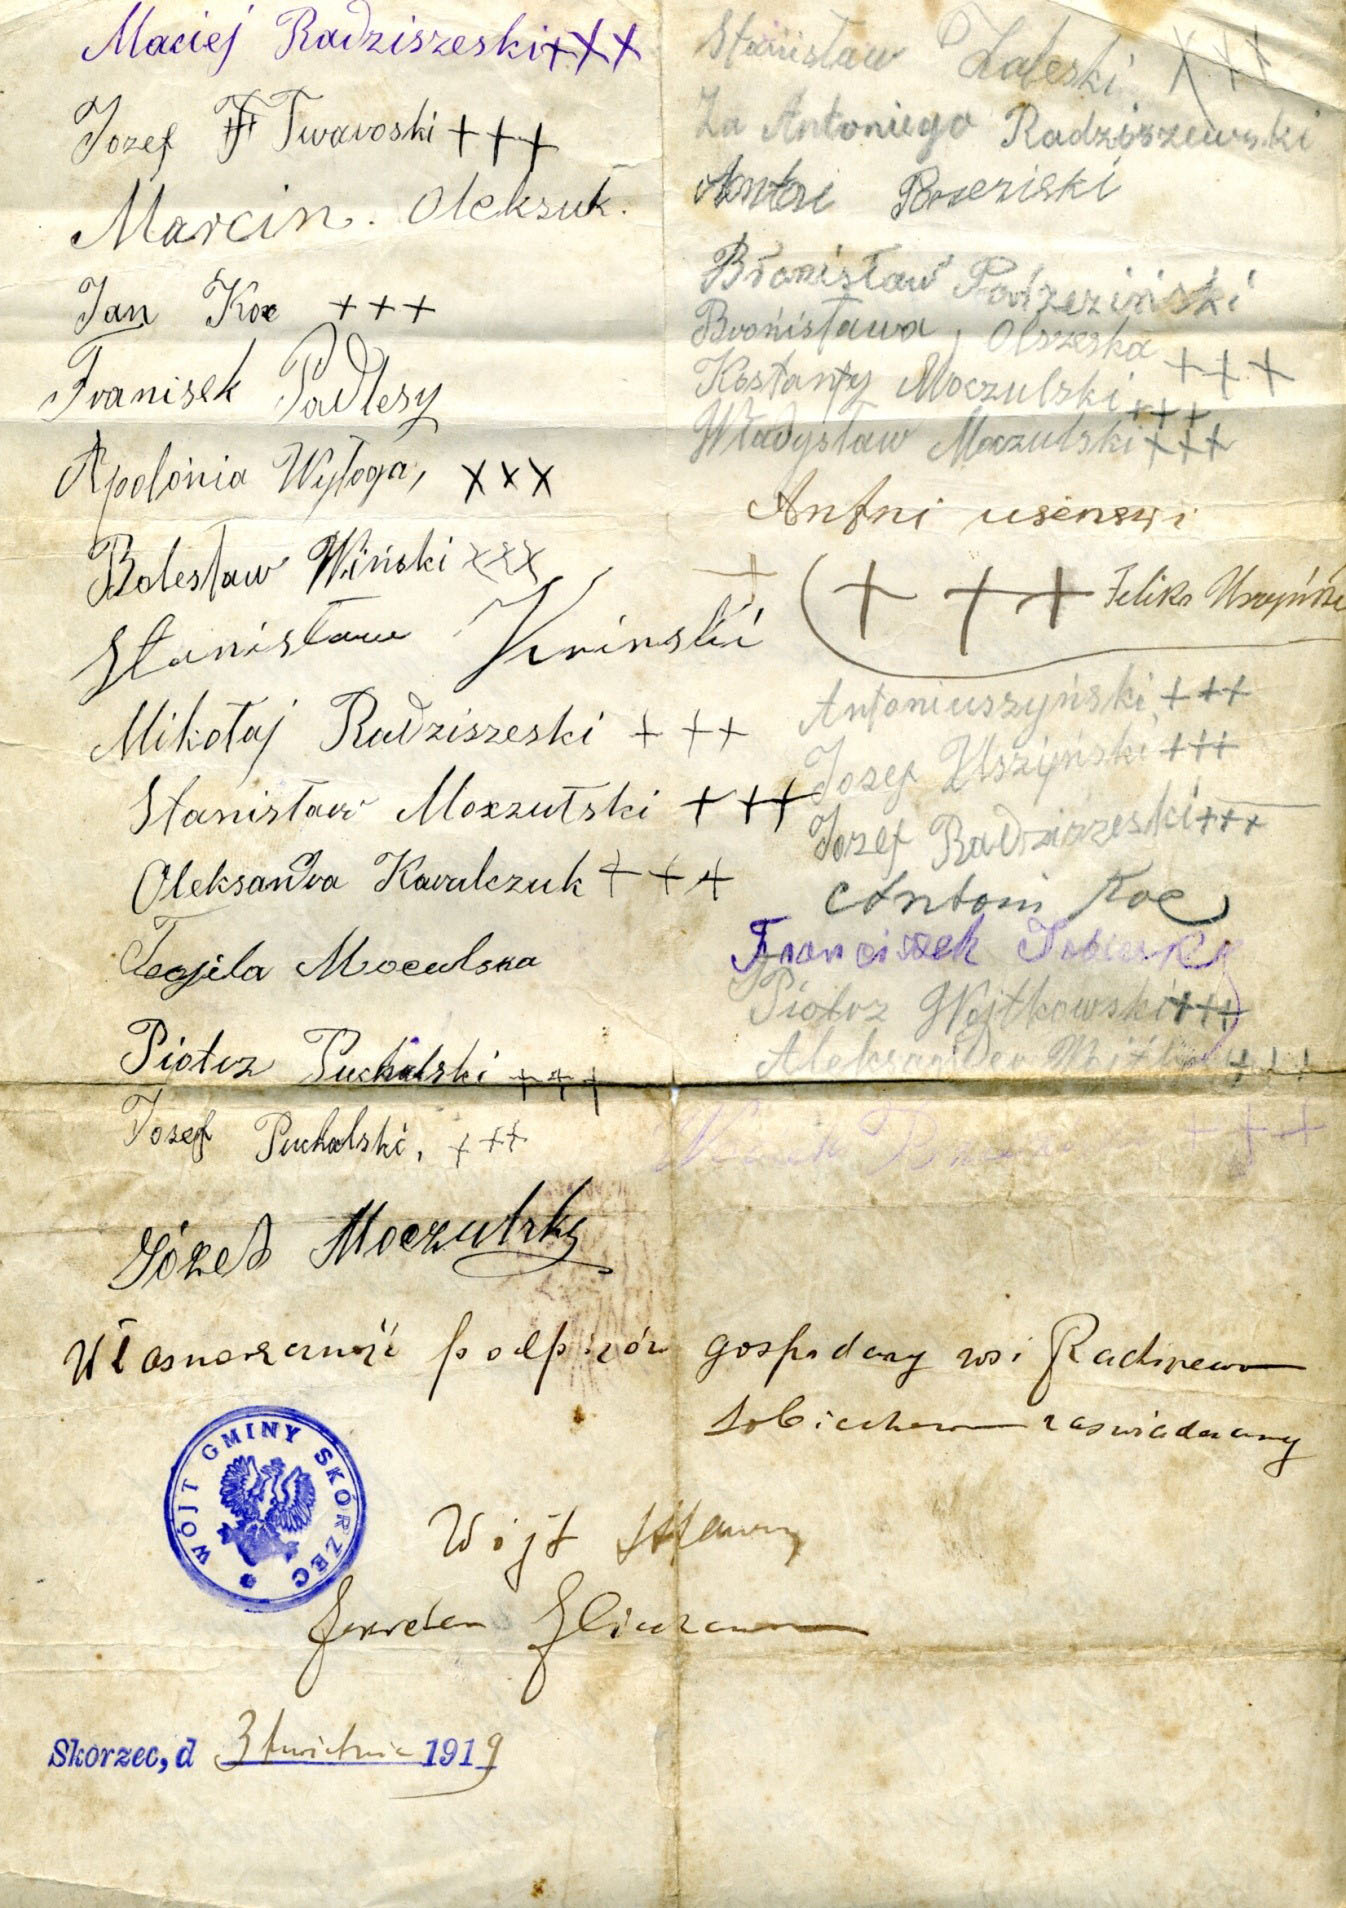 Maciej Radziszeski +++
Jozef Twaroski +++
Marcin. Oleksuk.
Jan Koc +++
Franisek Padlesy
Apolónia Wyłoga, xxx
Bolesław Wiński xxx
Stanisław
Mikołaj Radziszeski +++
Stanisław Moczulski +++
Oleksandra Kowalczuk +++
Teofila Moculska
Piotrz Puchalski +++
Jozef Puchalski, +++
Józef Moczulsky
Stanisław Zaleski xxx
Za Antoniego Radziszewski
Antoni
Bronisław
Bronisława Olszeska +++
Kostanty Moczulski +++
Władysław Moczulski +++
Antni
+ +++ Feliks
Antoni uszyński +++
Jozef Uszyński +++
Jozef Radziszeski +++
Antoni Koc
Franciszek
Piotrz Wojtkowski +++
Aleksander +++
+++
Własnoręczność podpisów gospodarzy wsi Radzirewo
zaświadczamy
WÓJT GMINY SKÓRZEC
Wójt
Skorzec, d 3 kwietnia 1919